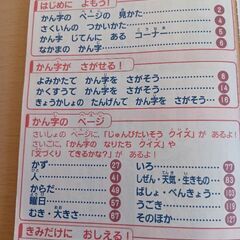 はじめに よもう!
かん字の ページの 見かた 2
さくいんの つかいかた 4
かん字 じてんに ある コーナー 6
なかまの かん字 8
かん字が さがせる!
よみかたで かん字を さがそう
かくすうで かん字を さがそう
きょうかしょの たんげんで かん字を さがそう 19
かん字の ページ
さいしょの ページに、「じゅんびたいそう クイズ」が あるよ!
さいごに、「かん字の なりたち クイズ」や
「文づくり できるかな?」が あるよ!
かず 27
人 41
からだ 49
曜日 57
むき・大きさ 65
いろ 77
しぜん・天気・生きもの 83
ばしょ・べんきょう
うごき
そのほか
きみだけに おしえる!